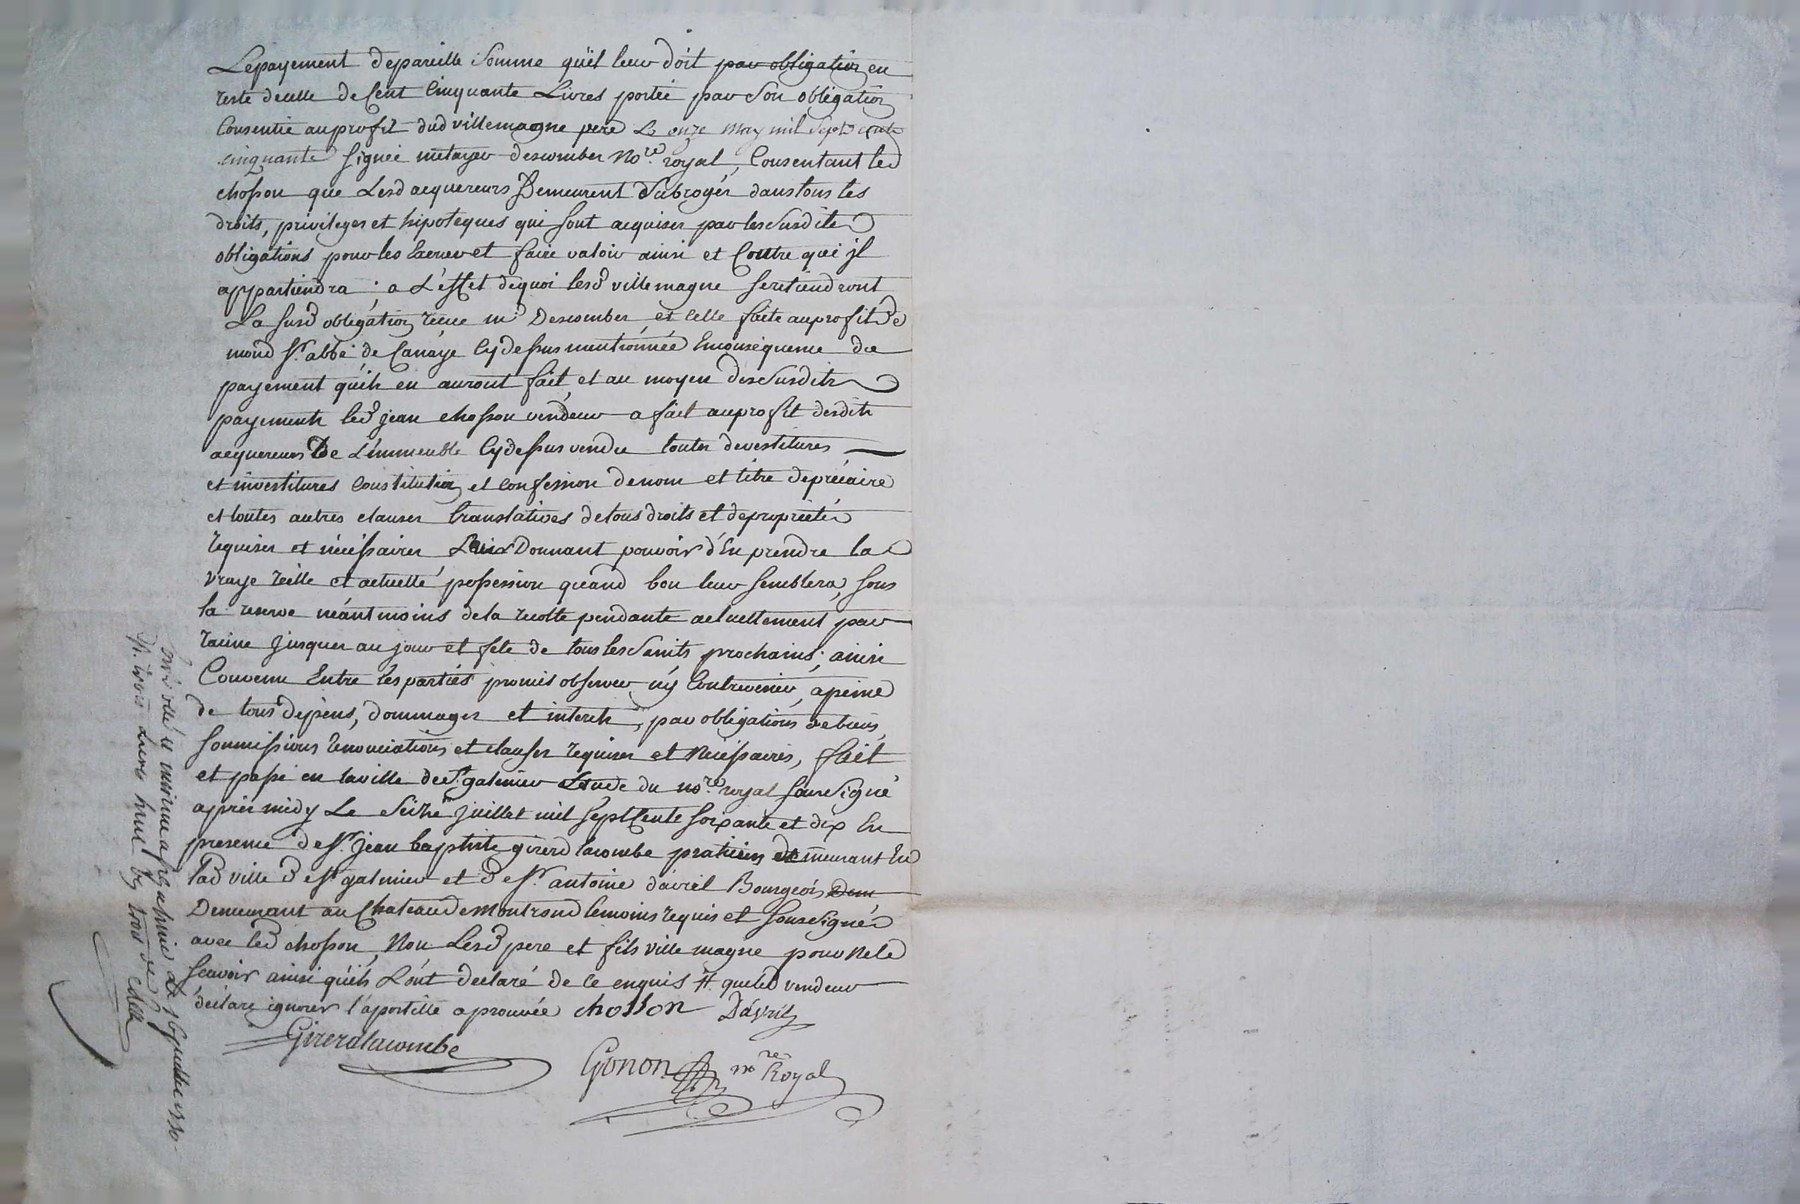 Le payement de pareille Somme qu'il leur doit par obligation en
reste de celle de Cent Cinquante Livres portée par Son obligation
Consentie au profit dud villemagne pere Le onze May mil Sept cents
cinquante Signée métayer descombes No.re royal, Consentant led
chosson que Lesd acquereurs Demeurent Subrogés dans tous les
droits, privileges et hipoteques qui sont acquises par les Susdites
obligations pour les Exercer et faire valoir ainsi et Contre qui jl
appartiendra; a L'effet de quoi lesd villemagne se retiendront
La susd obligation reçue m.e Descombes, et celle faite au profit de
mond S.r abbé de Canaye Cy dessus mentionnée En consequence du
payement qu'ils en auront fait, et au moyen des Susdits
payements led jean chosson vendeur a fait au profit desdits
acquereurs De L'immeuble Cy dessus vendu toutes devestitures
et investitures constitution et confession de nom et titre de précaire
et toutes autres clauses translatives de tous droits et de propriétés
requises et nécéssaires Leur Donnant pouvoir d'En prendre la
vraye réelle et actuelle possession quand bon leur semblera, sous
la reserve néantmoins de la recolte pendante actuellement par
racine jusques au jour et fete de tous les Saints prochains; ainsi
Convenu Entre les parties promis observer n'y Contrevenir, a peine
de tous dépens, dommages et interets, par obligations de biens,
soumissions renonciations et clauses requises et Nécéssaires, fait
et passé en la ville de S.t galmier Etude du no.re royal Soussigné
après midy Le Seize juillet mil Sept Cents Soixante et dix En
presence de S.r jean baptiste girerd lacombe praticien demeurant En
lad ville de S.t galmier et de S.r antoine davril Bourgeois Dem
Demeurant au Chateau de Montrond temoins requis et Soussignés
avec led chosson, Non Lesd pere et fils villemagne pour ne le
Scavoir ainsi qu'ils L'ont declaré de ce enquis ++ que led vendeur
declare ignorer l'apostille aprouvée chosson Davril
Girerdlacombe
Gonon no.re Royal
juillet 1770
trois Livres neuf